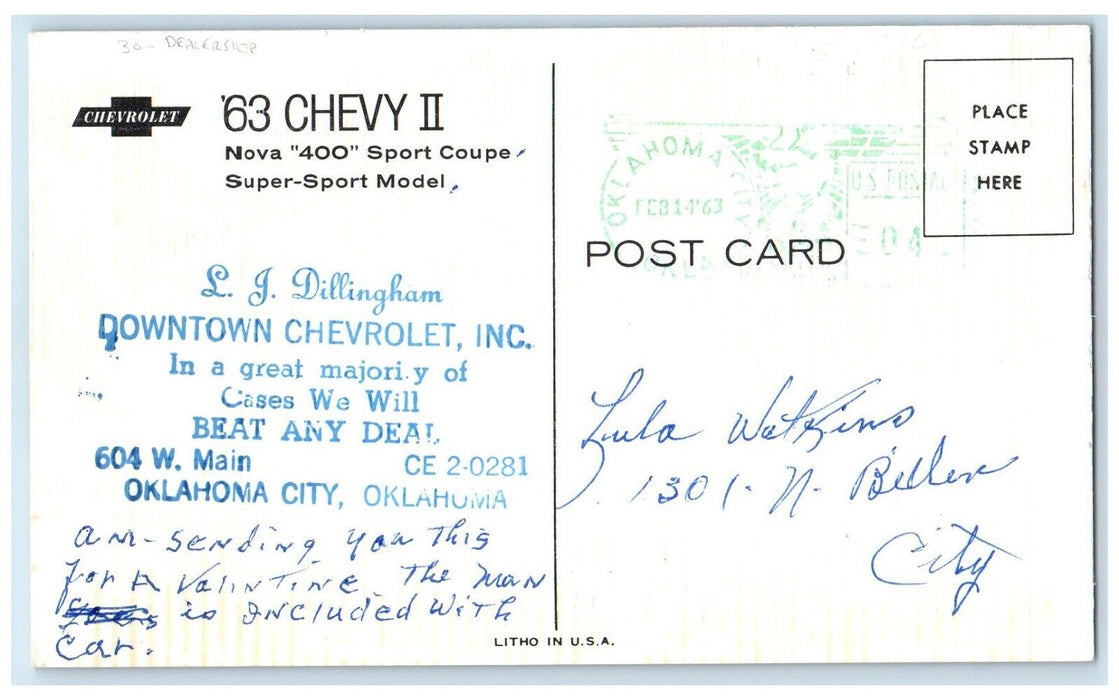 30- DEALERSHIP
CHEVROLET
'63 CHEVY II
Nova "400" Sport Coupe
Super-Sport Model
L. J. Dillingham
DOWNTOWN CHEVROLET, INC.
In a great majori.y of
Cases We Will
BEAT ANY DEAL
604 W. Main CE 2-0281
OKLAHOMA CITY, OKLAHOMA
am-sending you This
for A Valintine The man
is Included With
Car.
OKLAHOMA CITY
FEB14'63
U.S. POSTAGE
04
PLACE
STAMP
HERE
POST CARD
Lula Watkins
1301- N-
City
LITHO IN U.S.A.